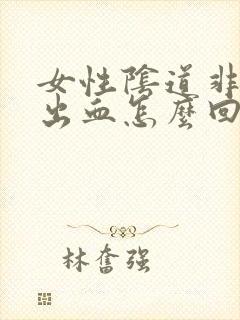 女性陰道非
出血怎麼回
林奮强